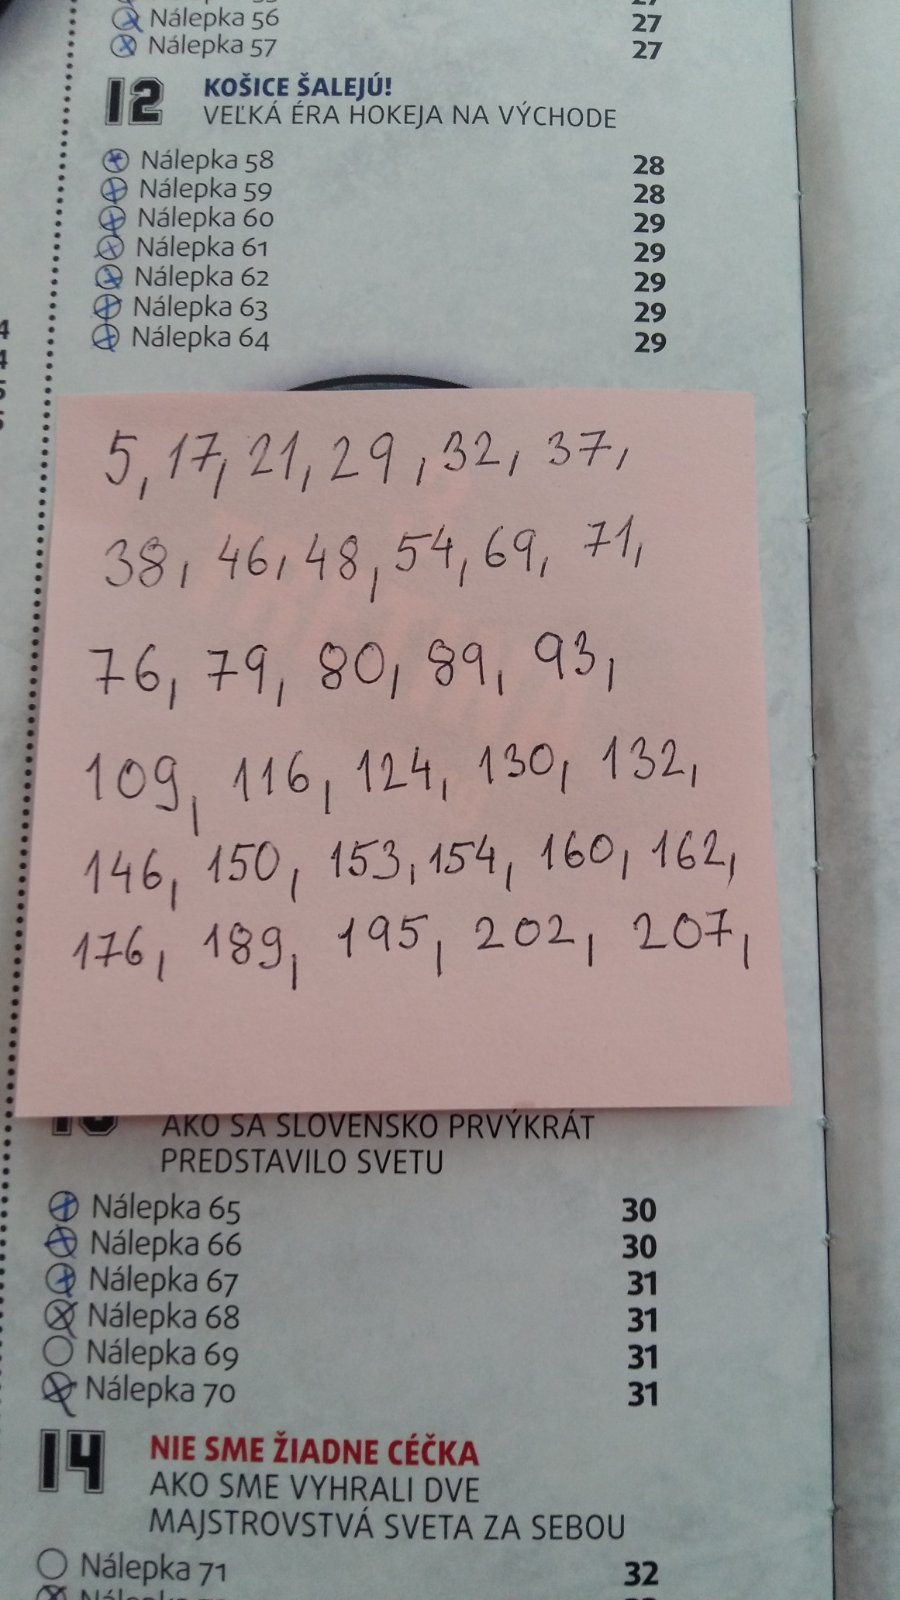 Nálepka 56 27
Nálepka 57 27
12 KOŠICE ŠALEJÚ!
VEĽKÁ ÉRA HOKEJA NA VÝCHODE
Nálepka 58 28
Nálepka 59 28
Nálepka 60 29
Nálepka 61 29
Nálepka 62 29
Nálepka 63 29
Nálepka 64 29
5, 17, 21, 29, 32, 37,
38, 46, 48, 54, 69, 71,
76, 79, 80, 89, 93,
109, 116, 124, 130, 132,
146, 150, 153, 154, 160, 162,
176, 189, 195, 202, 207,
AKO SA SLOVENSKO PRVÝKRÁT
PREDSTAVILO SVETU
Nálepka 65 30
Nálepka 66 30
Nálepka 67 31
Nálepka 68 31
Nálepka 69 31
Nálepka 70 31
14 NIE SME ŽIADNE CÉČKA
AKO SME VYHRALI DVE
MAJSTROVSTVÁ SVETA ZA SEBOU
Nálepka 71 32